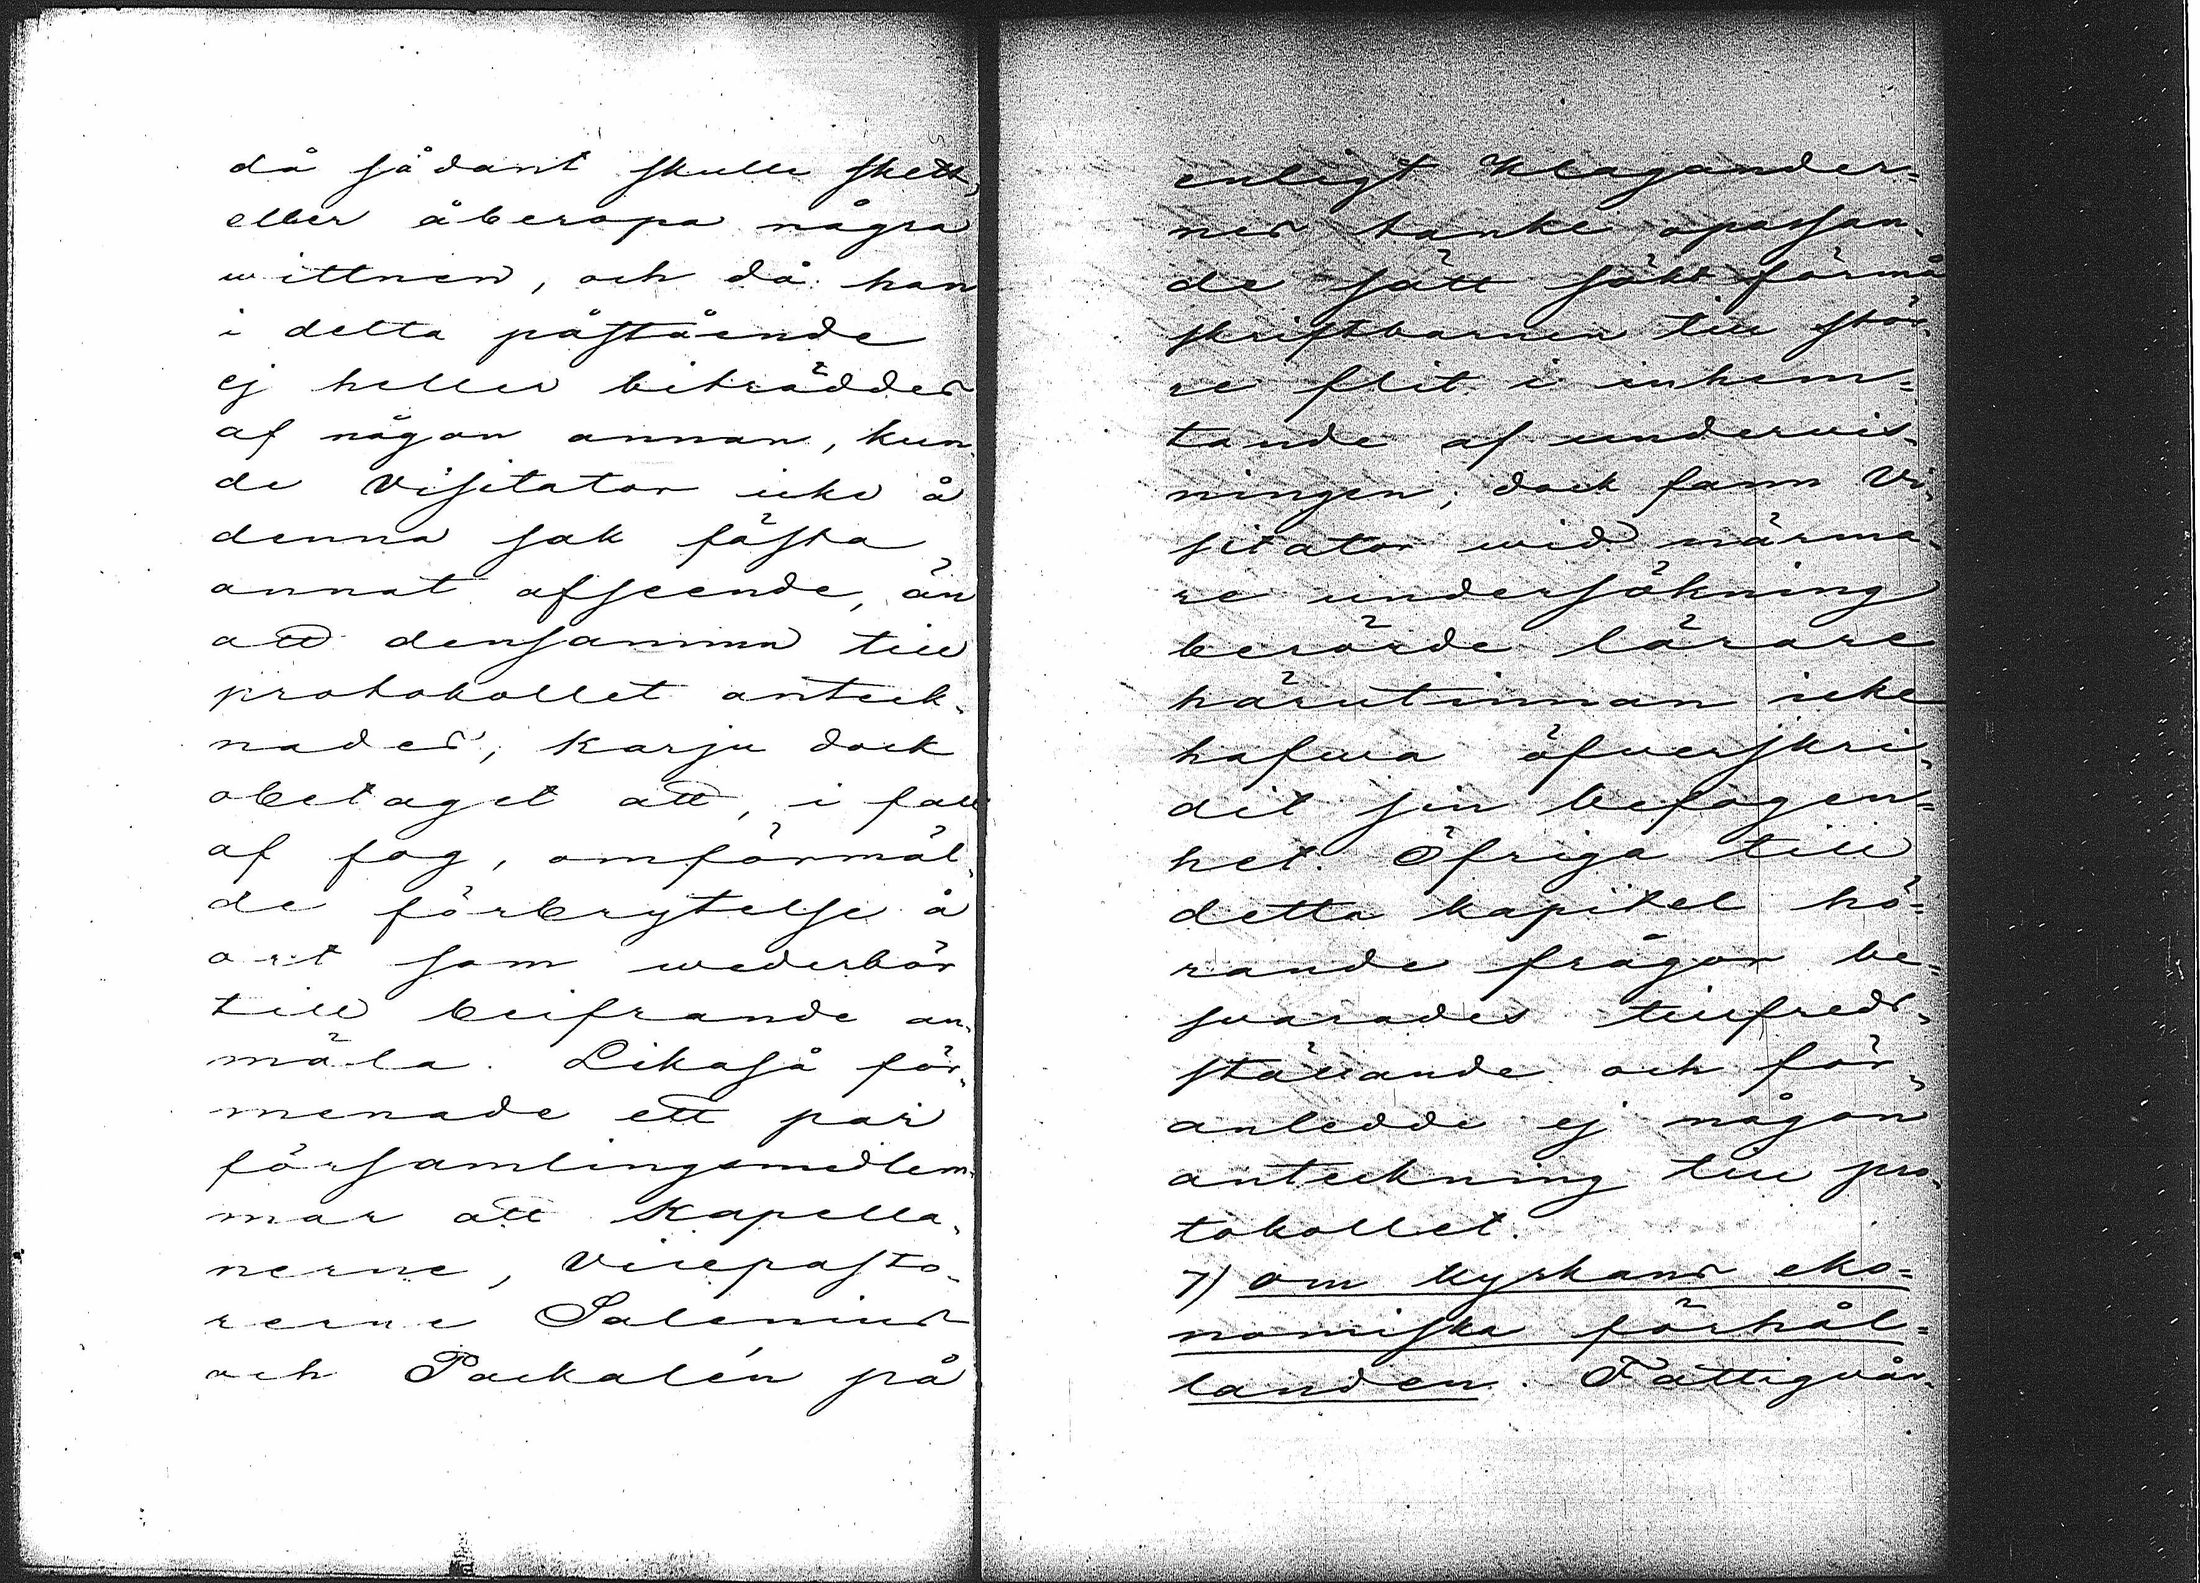 då sådant skulle skett,
eller åberopa några
wittnen, och då han
i detta påstående
ej heller biträddes
af någon annan, kun„
de Visitator icke å
denna sak fästa
annat afseende, än
att densamma till
protokollet anteck„
nades, Karju dock
obetaget att, i fall
af fog, omförmäl„
de förbrytelse å
ort som wederbör
till beifrande an„
mäla. Likaså för„
menade ett par
församlingsmedlem„
mar att Kapella„
nerne, Vicepasto„
rerne Salenius
och Packalén på
enligt Klagander=
nes tanke opassan„
de sätt sökt förmå
skriftbarnen till stör„
re flit i inhem=
tande af undervis„
ningen; dock fann Vi„
sitator wid närma„
re undersökning
berörde lärare
härutinnan icke
hafwa öfwerskri„
dit sin befogen=
het. Öfriga till
detta kapitel hö=
rande frågor be=
svarades tillfreds„
ställande och för„
anledde ej någon
anteckning till pro„
tokollet.
7) om kyrkans eko=
nomiska förhål=
landen. Fattigvår„